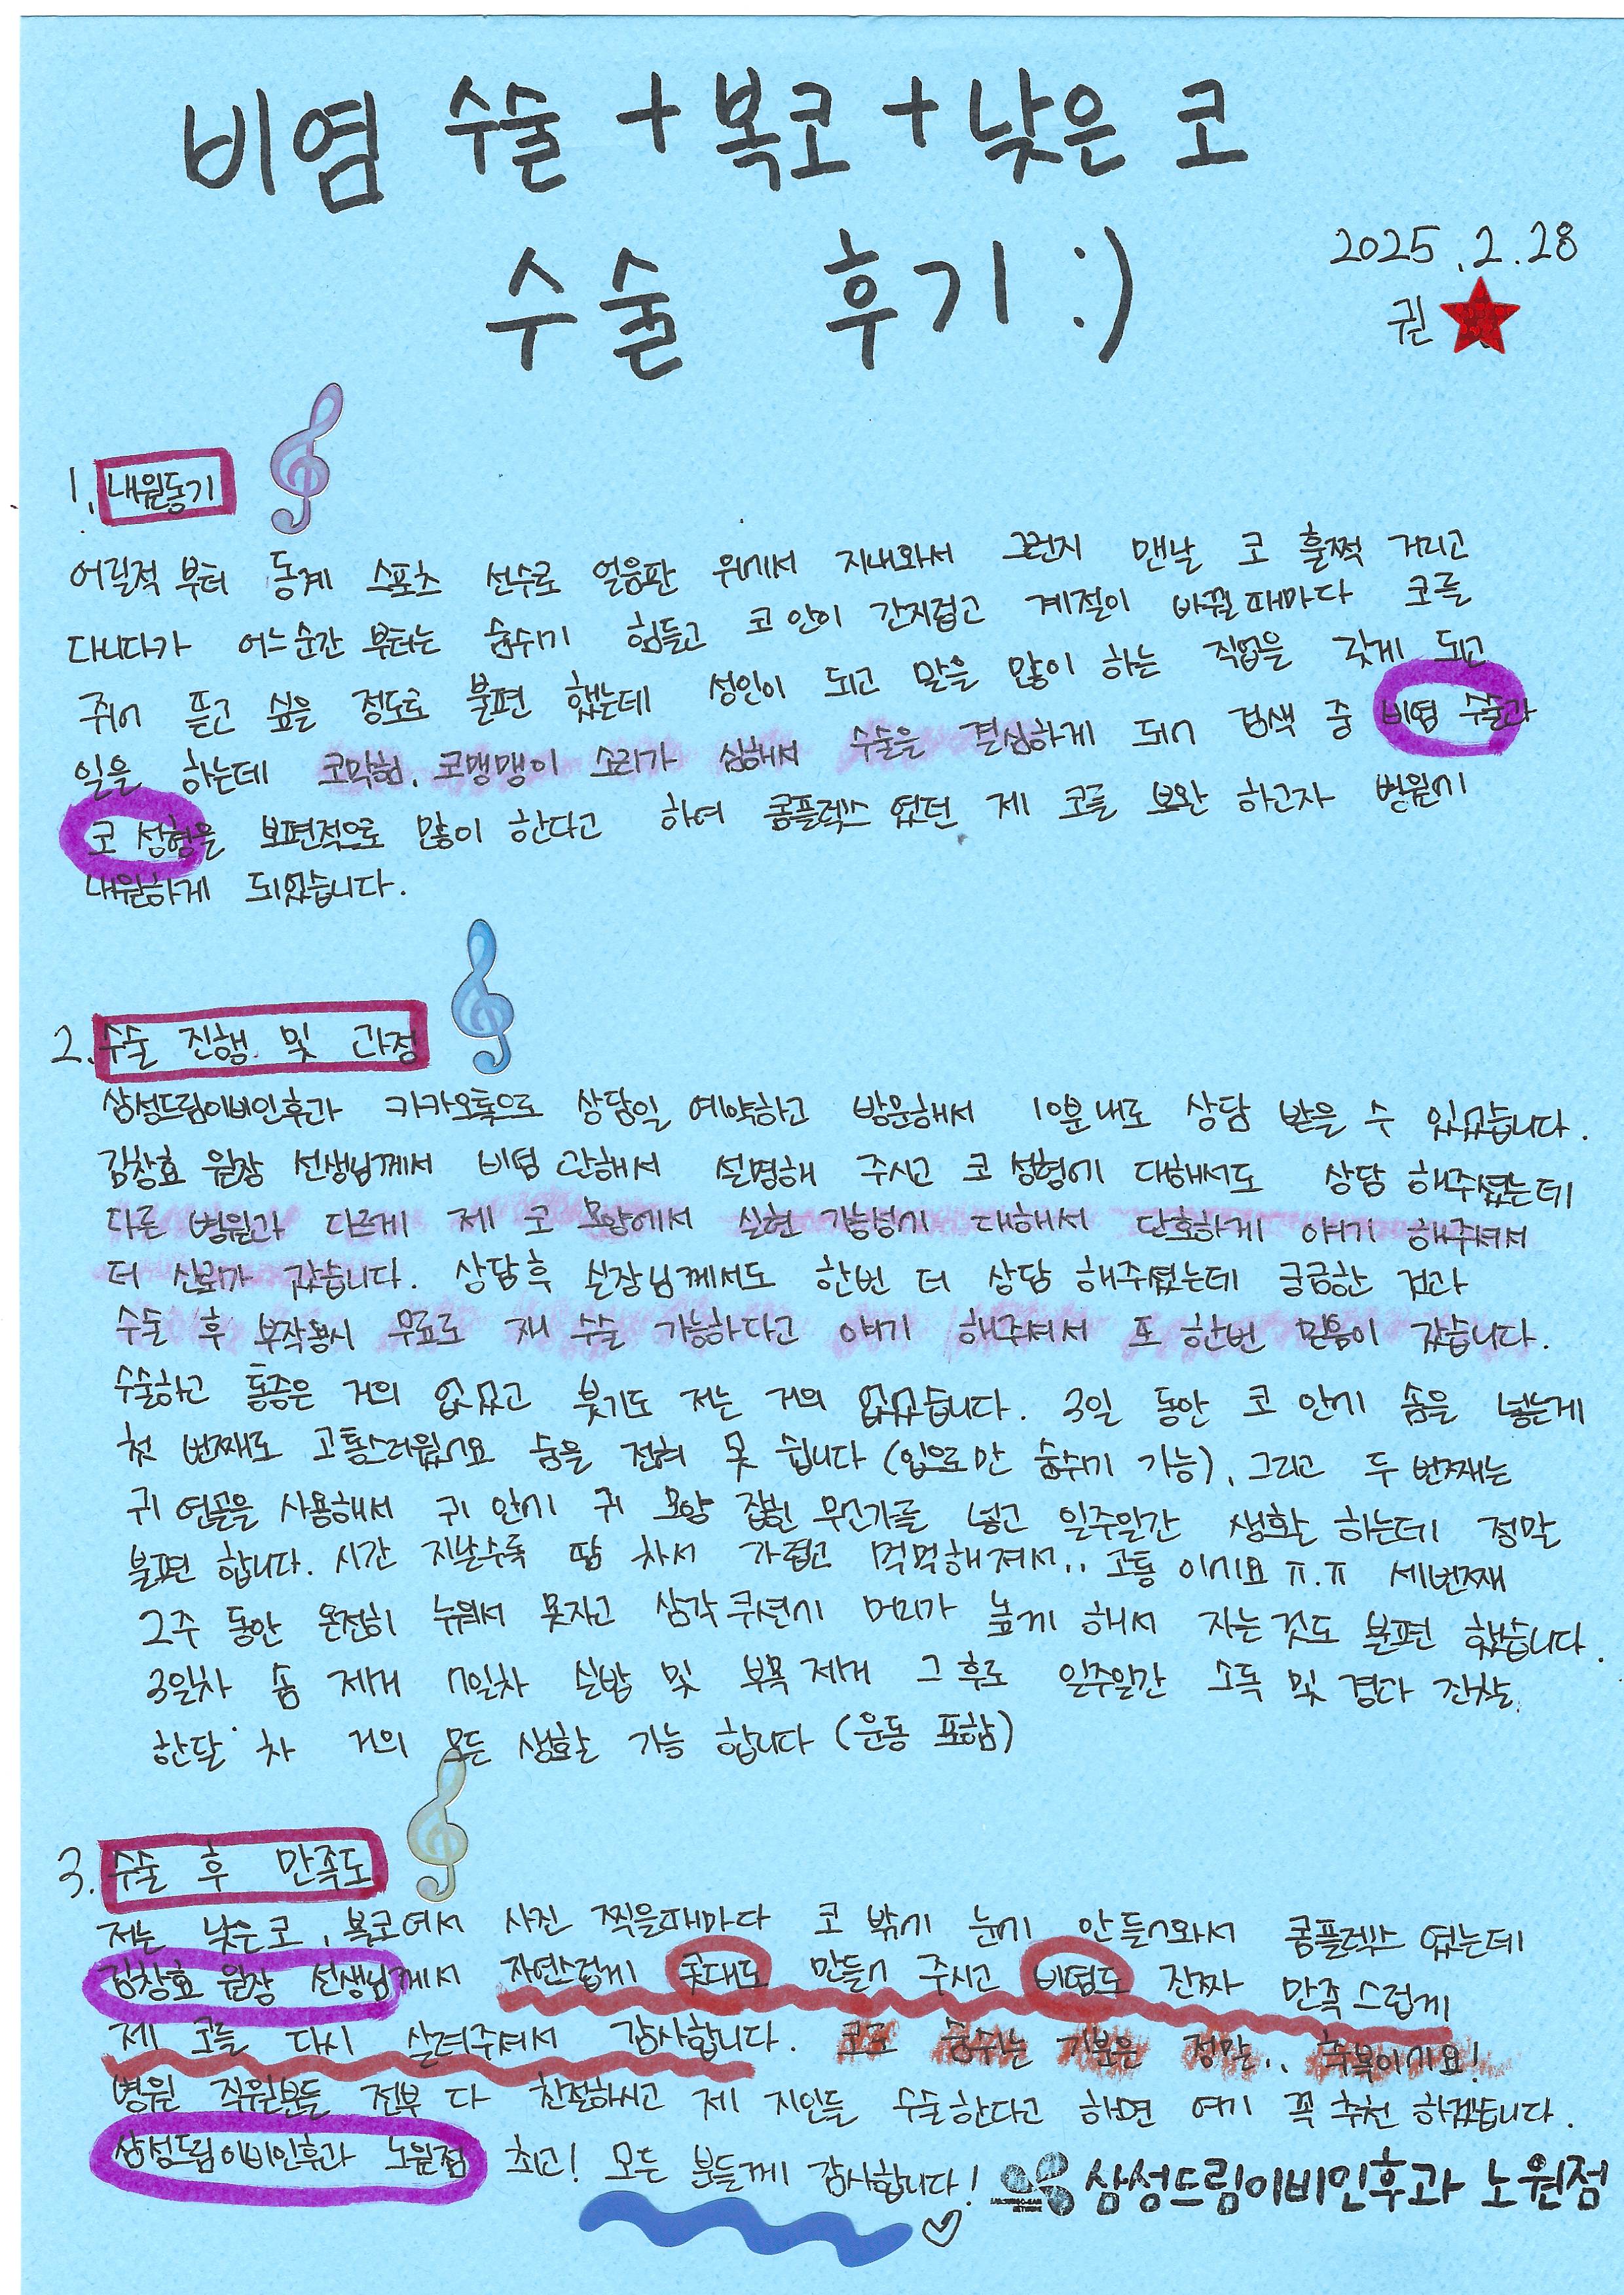 비염 수술 + 복코 + 낮은 코
수술 후기 :)
2025.2.28
권
1. 내원동기
어릴적 부터 동계 스포츠 선수로 얼음판 위에서 지내와서 그런지 맨날 코 훌쩍 거리고
다니다가 어느순간 부터는 숨쉬기 힘들고 코 안이 간지럽고 계절이 바뀔때마다 코를
쥐어 뜯고 싶을 정도로 불편 했는데 성인이 되고 말을 많이 하는 직업을 갖게 되고
일을 하는데 코막힘, 코맹맹이 소리가 심해서 수술을 결심하게 되어 검색 중 비염 수술과
코 성형을 보편적으로 많이 한다고 하여 콤플렉스 였던 제 코를 보완 하고자 병원에
내원하게 되었습니다.
2. 수술 진행 및 과정
삼성드림이비인후과 카카오톡으로 상담일 예약하고 방문해서 10분내로 상담 받을 수 있었습니다.
김창효 원장 선생님께서 비염 관해서 설명해 주시고 코 성형에 대해서도 상담 해주셨는데
다른 병원과 다르게 제 코 모양에서 실현 가능성에 대해서 단호하게 얘기 해주셔서
더 신뢰가 갔습니다. 상담후 실장님께서도 한번 더 상담 해주셨는데 궁금한 것과
수술 후 부작용시 무료로 재 수술 가능하다고 얘기 해주셔서 또 한번 믿음이 갔습니다.
수술하고 통증은 거의 없었고 붓기도 저는 거의 없었습니다. 3일 동안 코 안에 솜을 넣는게
첫 번째로 고통스러웠어요 숨을 전혀 못 쉽니다 (입으로만 숨쉬기 가능), 그리고 두 번째는
귀 연골을 사용해서 귀 안에 귀 모양 잡힌 무언가를 넣고 일주일간 생활 하는데 정말
불편 합니다. 시간 지날수록 땀 차서 가렵고 먹먹해져서.. 고통 이에요 ㅠ.ㅠ 세번째
2주 동안 온전히 누워서 못자고 삼각쿠션에 머리가 높게 해서 자는것도 불편 했습니다.
3일차 솜 제거 7일차 실밥 및 부목 제거 그 후로 일주일간 소독 및 경과 진찰
한달 차 거의 모든 생활 가능 합니다 (운동 포함)
3. 수술 후 만족도
저는 낮은코, 복코여서 사진 찍을때마다 코 밖에 눈에 안들어와서 콤플렉스 였는데
김창효 원장 선생님께서 자연스럽게 콧대도 만들어 주시고 비염도 진짜 만족 스럽게
제 코를 다시 살려주셔서 감사합니다. 코로 숨쉬는 기분은 정말.. 축복이에요!
병원 직원분들 전부 다 친절하시고 제 지인들 수술한다고 하면 여기 꼭 추천 하겠습니다.
삼성드림이비인후과 노원점 최고! 모든 분들께 감사합니다!
삼성드림이비인후과 노원점